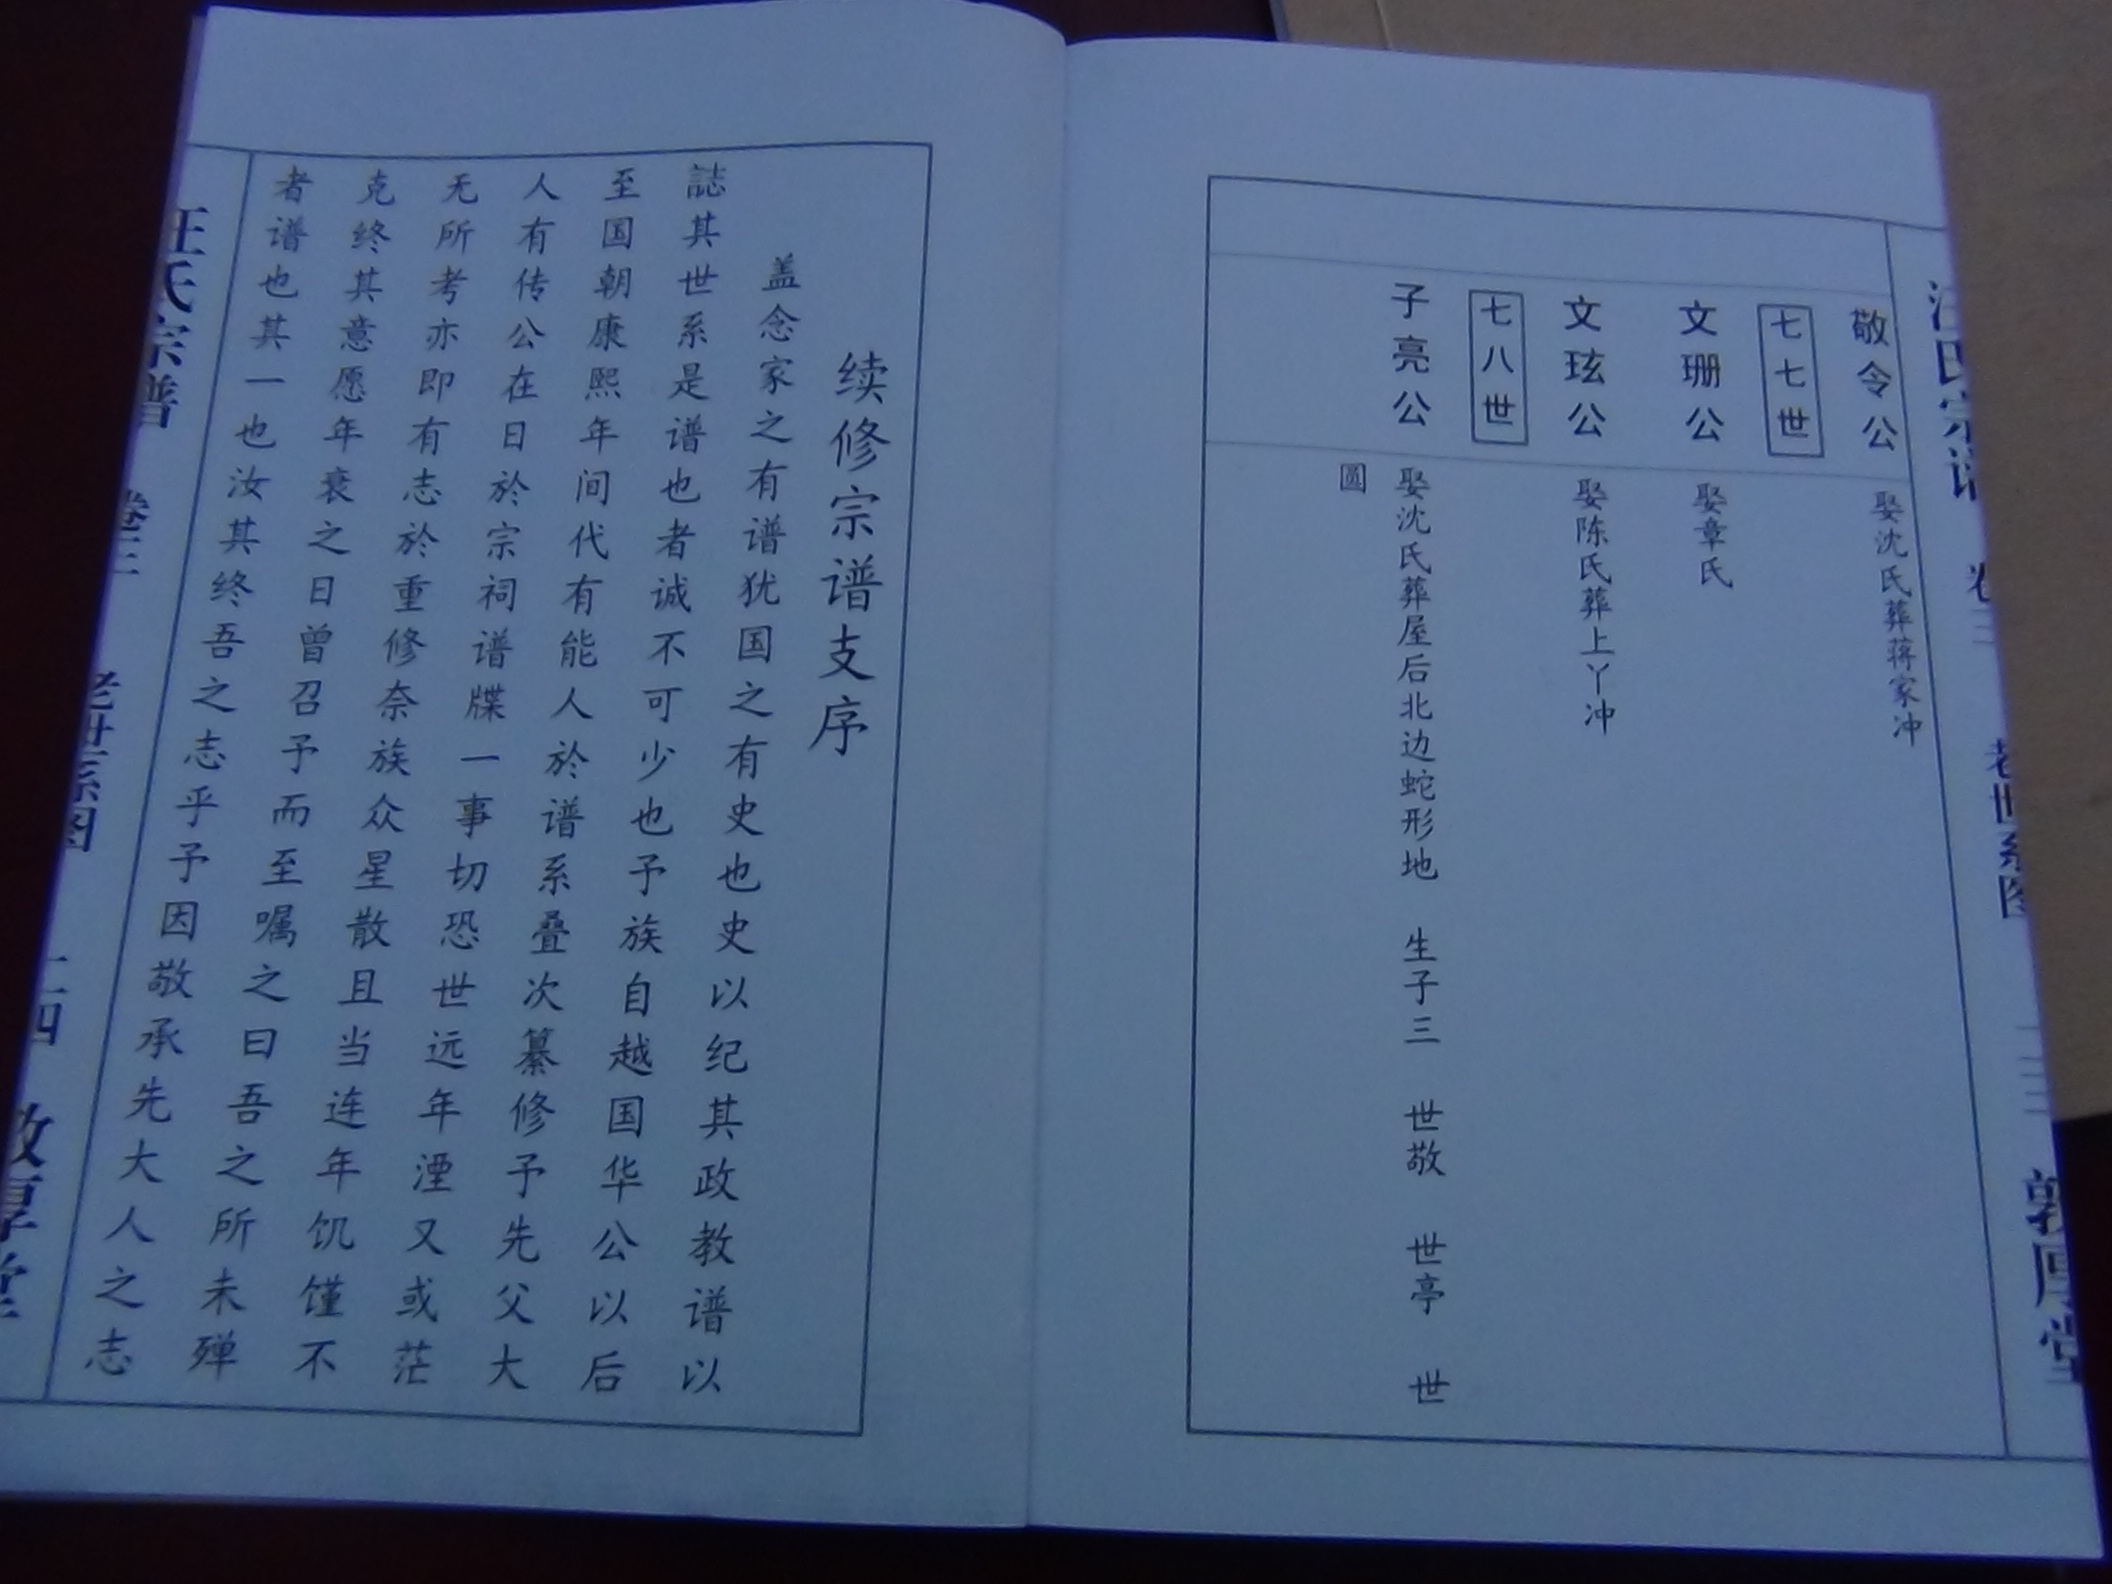 汪氏宗谱 卷三 老世系图 二三 敦厚堂
敬令公 娶沈氏葬蒋家冲
七七世
文珊公 娶章氏
文玹公 娶陈氏葬上丫冲
七八世
子亮公 娶沈氏葬屋后北边蛇形地 生子三 世敬 世亭 世
圆
续修宗谱支序
盖念家之有谱犹国之有史也史以纪其政教谱以
誌其世系是谱也者诚不可少也予族自越国华公以后
至国朝康熙年间代有能人於谱系叠次纂修予先父大
人有传公在日於宗祠谱牒一事切恐世远年湮又或茫
无所考亦即有志於重修奈族众星散且当连年饥馑不
克终其意愿年衰之日曾召予而至嘱之曰吾之所未殚
者谱也其一也汝其终吾之志乎予因敬承先大人之志
汪氏宗谱 卷三 老世系图 二四 敦厚堂